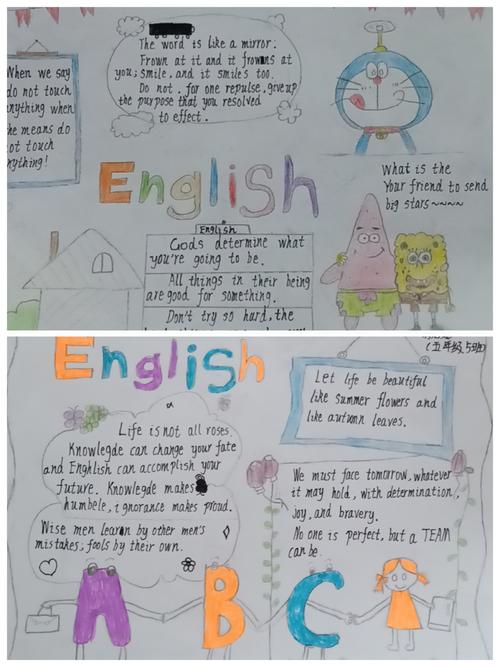 The word is like a mirror:
Frown at it and it frowns at
you; smile, and it smiles too.
Do not, for one repulse, give up
the purpose that you resolved
to effect.
When we say
do not touch
anything when
he means do
not touch
nything!
English
What is the
Your friend to send
big stars~~~~
English
Gods determine what
you're going to be.
All things in their being
are good for something.
Don't try so hard, the
English
(五年级5班)
Let life be beautiful
like summer flowers and
like autumn leaves.
Life is not all roses.
Knowlegde can change your fate
and Enghlish can accomplish your
future. Knowlegde makes
humbele, ignorance makes proud.
Wise men learan by other men's
mistakes; fools by their own.
We must face tomorrow, whatever
it may hold, with determination,
joy, and bravery.
No one is perfect, but a TEAM
can be.
A B C